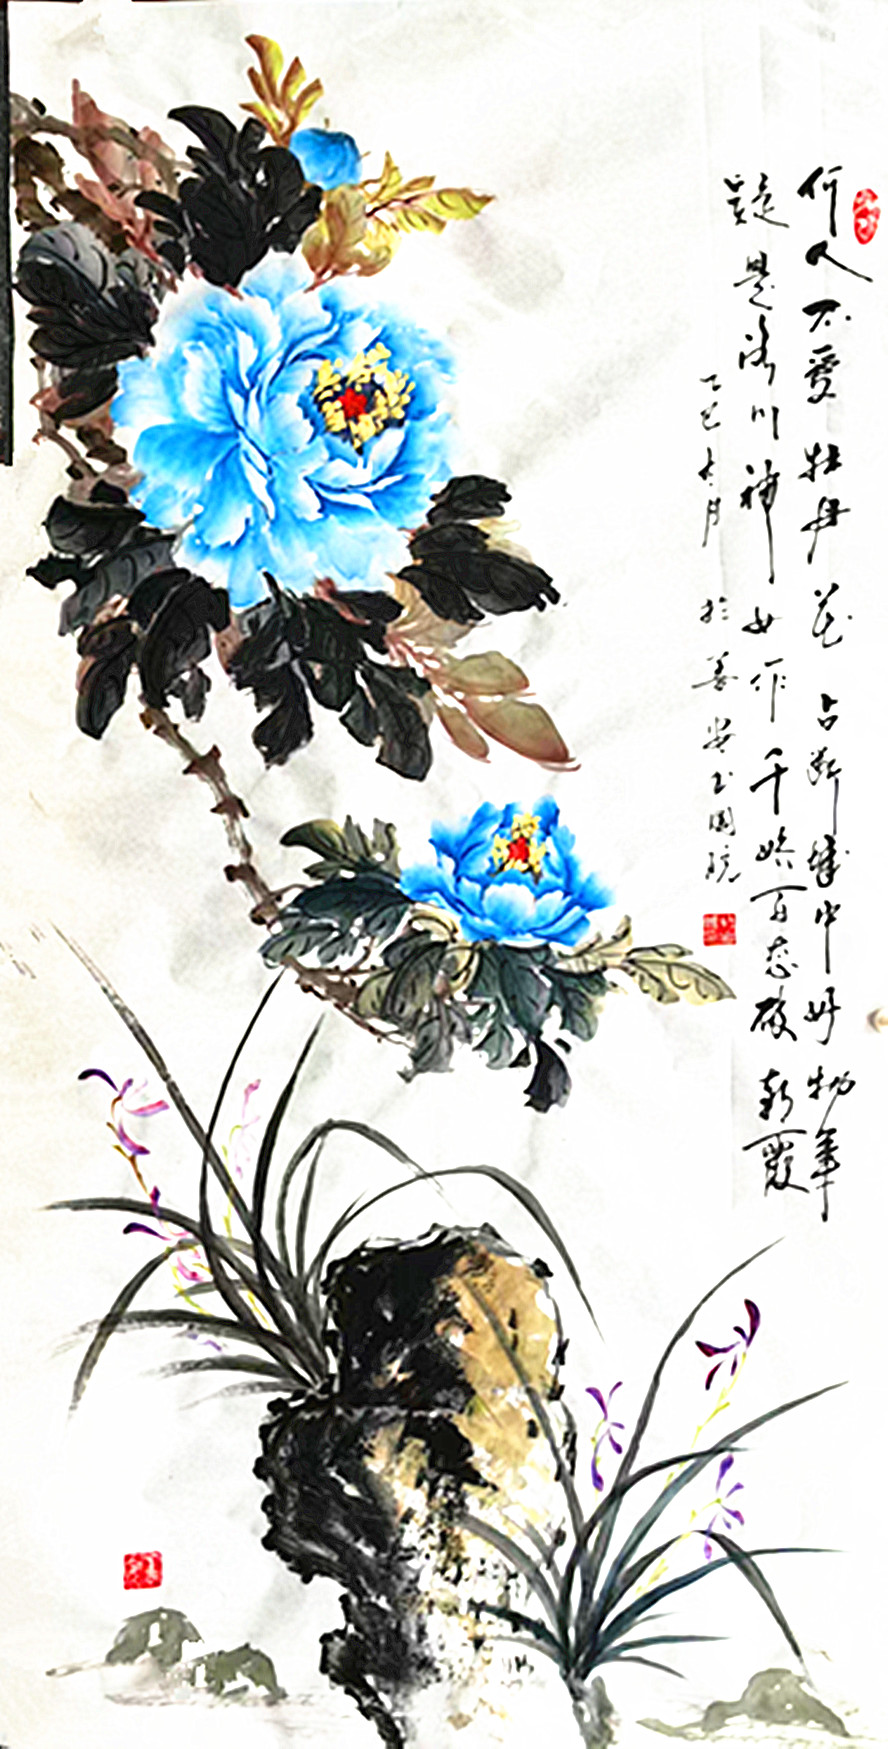 何人不爱牡丹花 占断城中好物華
疑是洛川神女作 千娇百态破朝霞
乙巳 月 於 安书 院